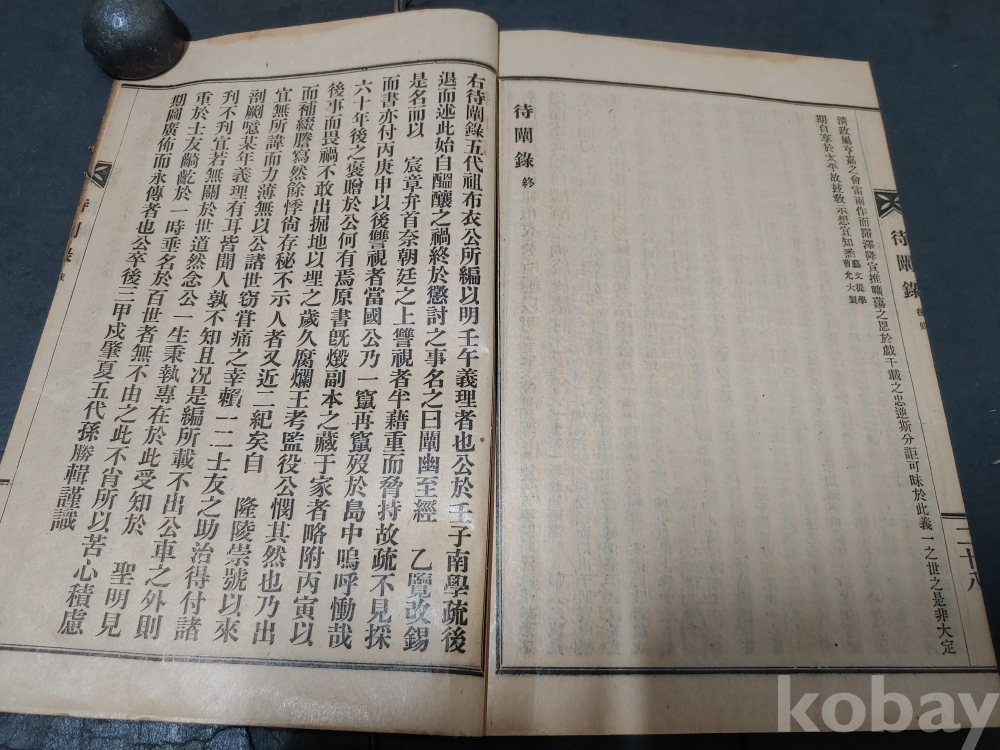 清政屬亨嘉之會雷雨作而霈澤降宜推曠蕩之恩於戱干戢之忠逆斯分詎可昧於此義一之世之是非大定
期自享於太平故玆敎示想宜知悉藝文提學曹允大製
待闡錄終
待闡錄
二十八
右待闡錄五代祖布衣公所編以明壬午義理者也公於壬子南學疏後
退而述此始自醞釀之禍終於懲討之事名之曰闡幽至經 乙覽改錫
是名而以 宸章弁首奈朝廷之上讐視者半藉重而脅持故疏不見採
而書亦付丙庚申以後讐視者當國公乃一竄再竄歿於島中嗚呼慟哉
六十年後之褒贈於公何有焉原書旣燬副本之藏于家者略附丙寅以
後事而畏禍不敢出掘地以埋之歲久腐爛王考監役公憫其然也乃出
而補綴謄寫然餘悸尙存秘不示人者又近二紀矣自 隆陵崇號以來
宜無所諱而力薄無以公諸世窃甞痛之幸賴一二士友之助治得付諸
剞劂噫某年義理有耳皆聞人孰不知且况是編所載不出公車之外則
刋不刋宜若無關於世道然念公一生秉執專在於此受知於 聖明見
重於士友齮齕於一時垂名於百世者無不由之此不肖所以苦心積慮
期圖廣佈而永傳者也公卒後三甲戍肇夏五代孫勝輯謹識
kobay